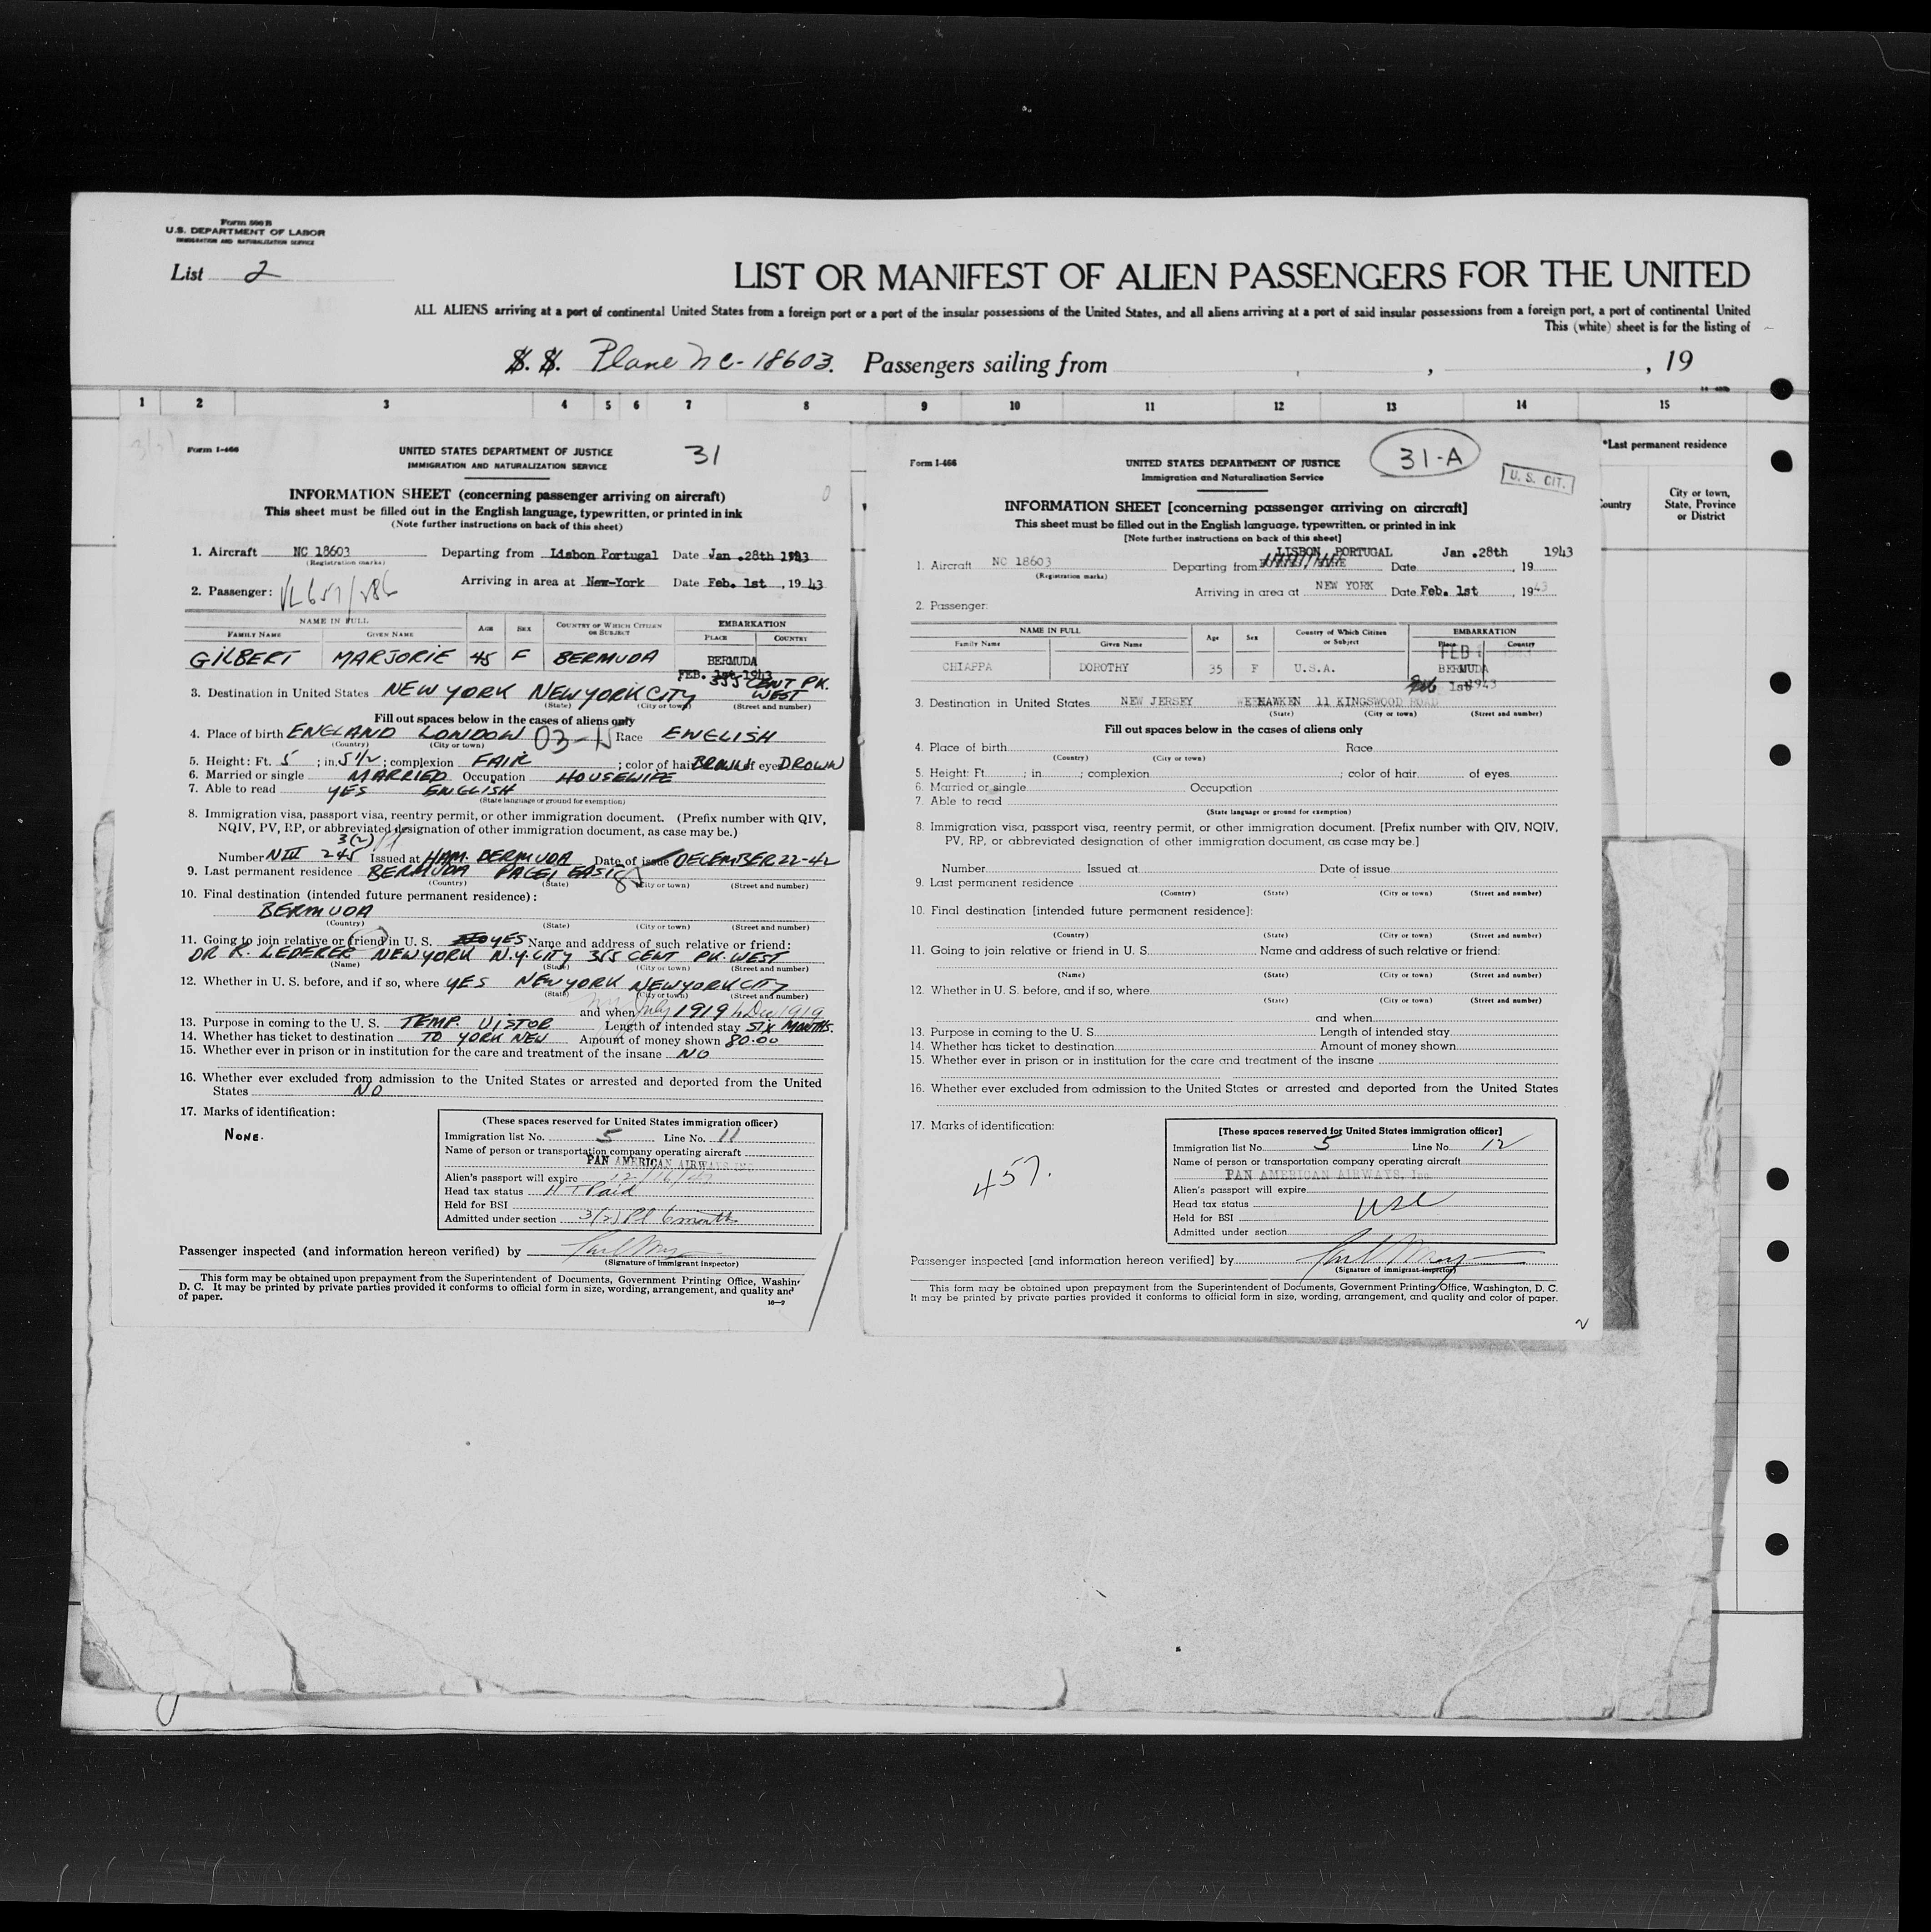 Form 500 B
U.S. DEPARTMENT OF LABOR
IMMIGRATION AND NATURALIZATION SERVICE
List 2
LIST OR MANIFEST OF ALIEN PASSENGERS FOR THE UNITED
ALL ALIENS arriving at a port of continental United States from a foreign port or a port of the insular possessions of the United States, and all aliens arriving at a port of said insular possessions from a foreign port, a port of continental United
This (white) sheet is for the listing of
S. S. Plane NC-18603. Passengers sailing from , , 19
1 2 3 4 5 6 7 8 9 10 11 12 13 14 15
*Last permanent residence
Country
City or town, State, Province or District
Form I-466
UNITED STATES DEPARTMENT OF JUSTICE
31
IMMIGRATION AND NATURALIZATION SERVICE
INFORMATION SHEET (concerning passenger arriving on aircraft)
This sheet must be filled out in the English language, typewritten, or printed in ink
(Note further instructions on back of this sheet)
1. Aircraft NC 18603 Departing from Lisbon Portugal Date Jan .28th 1943
(Registration marks)
Arriving in area at New-York Date Feb. 1st , 19 43
2. Passenger:
NAME IN FULL AGE SEX COUNTRY OF WHICH CITIZEN OR SUBJECT EMBARKATION
FAMILY NAME GIVEN NAME PLACE COUNTRY
GILBERT MARJORIE 45 F BERMUDA BERMUDA
FEB. 1st 1943
355 CENT PK. WEST
3. Destination in United States NEW YORK NEW YORK CITY
(State) (City or town) (Street and number)
Fill out spaces below in the cases of aliens only
4. Place of birth ENGLAND LONDON Race ENGLISH
(Country) (City or town)
5. Height: Ft. 5 ; in. 5 1/2 ; complexion FAIR ; color of hair BROWN of eyes BROWN
6. Married or single MARRIED Occupation HOUSEWIFE
7. Able to read YES ENGLISH
(State language or ground for exemption)
8. Immigration visa, passport visa, reentry permit, or other immigration document. (Prefix number with QIV,
NQIV, PV, RP, or abbreviated designation of other immigration document, as case may be.)
3(2)
Number NIII 245 Issued at HAM. BERMUDA Date of issue DECEMBER 22-42
9. Last permanent residence BERMUDA PAGET EAST
(Country) (State) (City or town) (Street and number)
10. Final destination (intended future permanent residence):
BERMUDA
(Country) (State) (City or town) (Street and number)
11. Going to join relative or friend in U. S. YES Name and address of such relative or friend:
DR R. LEDERER NEW YORK N.Y. CITY 355 CENT PK. WEST
(Name) (State) (City or town) (Street and number)
12. Whether in U. S. before, and if so, where YES NEW YORK NEW YORK CITY
(State) (City or town) (Street and number)
and when July 1919 to Dec 1919
13. Purpose in coming to the U. S. TEMP. VISTOR Length of intended stay SIX MONTHS.
14. Whether has ticket to destination TO YORK NEW Amount of money shown 80.00
15. Whether ever in prison or in institution for the care and treatment of the insane NO
16. Whether ever excluded from admission to the United States or arrested and deported from the United
States NO
17. Marks of identification:
NONE.
(These spaces reserved for United States immigration officer)
Immigration list No. 5 Line No. 11
Name of person or transportation company operating aircraft
PAN AMERICAN AIRWAYS INC
Alien's passport will expire
Head tax status HT Paid
Held for BSI
Admitted under section 3(2) Pl 6 months
Passenger inspected (and information hereon verified) by
(Signature of immigrant inspector)
This form may be obtained upon prepayment from the Superintendent of Documents, Government Printing Office, Washin
D. C. It may be printed by private parties provided it conforms to official form in size, wording, arrangement, and quality and
of paper.
Form I-466
UNITED STATES DEPARTMENT OF JUSTICE
31-A
Immigration and Naturalization Service
U. S. CIT.
INFORMATION SHEET [concerning passenger arriving on aircraft]
This sheet must be filled out in the English language, typewritten, or printed in ink
[Note further instructions on back of this sheet]
LISBON PORTUGAL Jan .28th 1943
1. Aircraft NC 18603 Departing from Date , 19
(Registration marks)
Arriving in area at NEW YORK Date Feb. 1st , 1943
2. Passenger:
NAME IN FULL Age Sex Country of Which Citizen or Subject EMBARKATION
Family Name Given Name Place Country
CHIAPPA DOROTHY 35 F U.S.A. BERMUDA
Feb 1st 1943
3. Destination in United States NEW JERSEY WEEHAWKEN 11 KINGSWOOD ROAD
(State) (City or town) (Street and number)
Fill out spaces below in the cases of aliens only
4. Place of birth Race
(Country) (City or town)
5. Height: Ft. ; in ; complexion ; color of hair of eyes
6. Married or single Occupation
7. Able to read
(State language or ground for exemption)
8. Immigration visa, passport visa, reentry permit, or other immigration document. [Prefix number with QIV, NQIV,
PV, RP, or abbreviated designation of other immigration document, as case may be.]
Number Issued at Date of issue
9. Last permanent residence
(Country) (State) (City or town) (Street and number)
10. Final destination [intended future permanent residence]:
(Country) (State) (City or town) (Street and number)
11. Going to join relative or friend in U. S. Name and address of such relative or friend:
(Name) (State) (City or town) (Street and number)
12. Whether in U. S. before, and if so, where
(State) (City or town) (Street and number)
and when
13. Purpose in coming to the U. S. Length of intended stay
14. Whether has ticket to destination Amount of money shown
15. Whether ever in prison or in institution for the care and treatment of the insane
16. Whether ever excluded from admission to the United States or arrested and deported from the United States
17. Marks of identification:
457.
[These spaces reserved for United States immigration officer]
Immigration list No 5 Line No 12
Name of person or transportation company operating aircraft
PAN AMERICAN AIRWAYS, Inc.
Alien's passport will expire
Head tax status
USC
Held for BSI
Admitted under section
Passenger inspected [and information hereon verified] by
(Signature of immigrant inspector)
This form may be obtained upon prepayment from the Superintendent of Documents, Government Printing Office, Washington, D. C.
It may be printed by private parties provided it conforms to official form in size, wording, arrangement, and quality and color of paper.
2